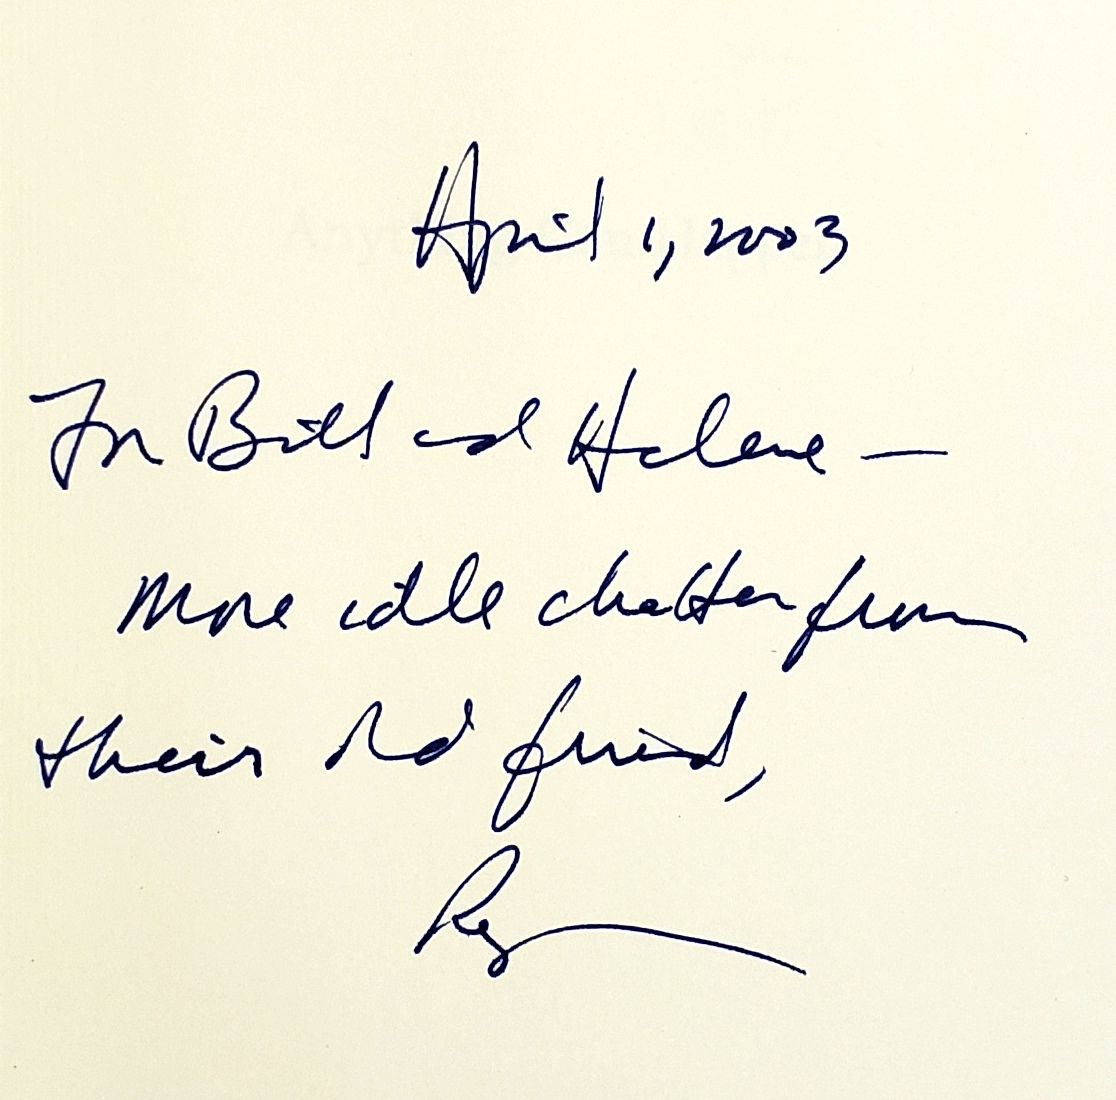 April 1, 2003
For Bill and Helene —
More idle chatter from
their old friend,